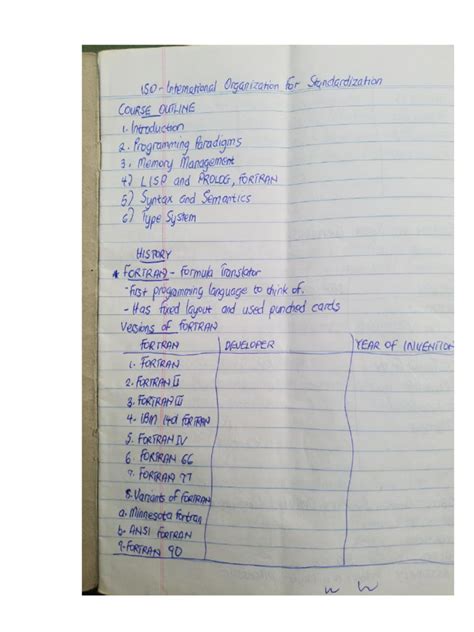 ISO - International Organization for Standardization
COURSE OUTLINE
1. Introduction
2. Programming Paradigms
3. Memory Management
4) LISP and PROLOG, FORTRAN
5) Syntax and Semantics
6) Type System
HISTORY
* FORTRAN - Formula Translator
- First programming language to think of.
- Has fixed layout and used punched cards
Versions of FORTRAN
FORTRAN DEVELOPER YEAR OF INVENTION
1. FORTRAN
2. FORTRAN II
3. FORTRAN III
4. IBM 1401 FORTRAN
5. FORTRAN IV
6. FORTRAN 66
7. FORTRAN 77
8. Variants of FORTRAN
a. Minnesota Fortran
b. ANSI FORTRAN
9. FORTRAN 90